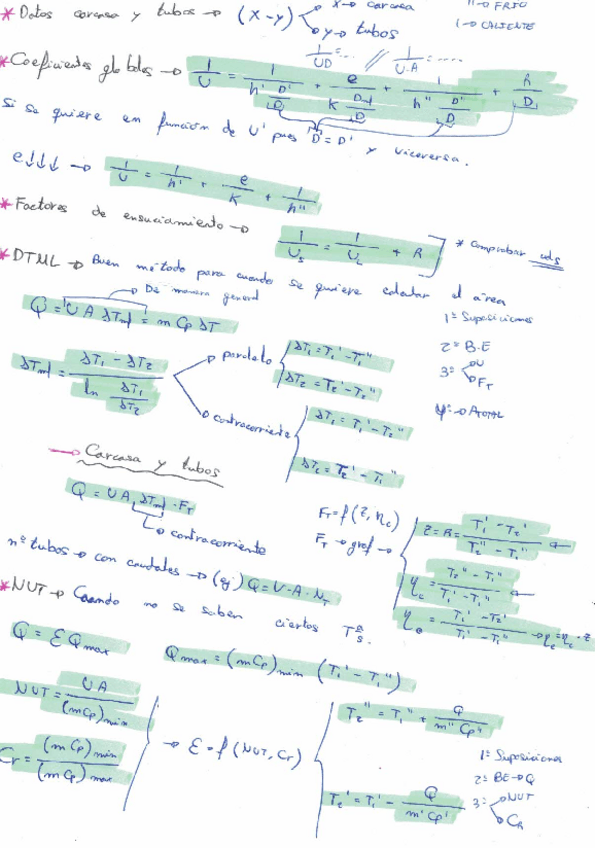 * Datos carcasa y tubos → (x-y) x → carcasa
y → tubos
11 → FRIO
1 → CALIENTE
1/UD = ... // 1/U·A = ....
* Coeficientes globales → 1/U = 1/(h' D'/D) + e/(k Dml/D) + 1/(h'' D''/D) + R/D
Si se quiere en función de U' pues D' = D' y viceversa.
e↓↓↓ → 1/U = 1/h' + e/K + 1/h''
* Factores de ensuciamiento → 1/Us = 1/UL + R ] * Comprobar uds
* DTML → Buen método para cuando se quiere calcular el área
→ De manera general
Q = U A ΔTml = m Cp ΔT
1º Suposiciones
2º B·E
3º U
FT
4º → ATOTAL
ΔTml = (ΔT1 - ΔT2) / ln (ΔT1/ΔT2)
paralelo ΔT1 = T1' - T1''
ΔT2 = T2' - T2''
contracorriente ΔT1 = T1' - T2''
ΔT2 = T2' - T1''
→ Carcasa y tubos
Q = U A ΔTml · FT
→ contracorriente
FT = f (z, ηc)
FT → graf →
z = R = (T1' - T2') / (T2'' - T1'') ←
ηc = (T2'' - T1'') / (T1' - T1'') ←
ηe = (T1' - T2') / (T1' - T1'') → ηe = ηc · z
nº tubos → con caudales → (ej) Q = V·A·NT
* NUT → Cuando no se saben ciertos Tªs.
Q = Ɛ Qmax
Qmax = (m Cp)min (T1' - T1'')
NUT = UA / (m Cp)min
Cr = (m Cp)min / (m Cp)max
→ Ɛ = f (NUT, Cr)
T2'' = T1'' + Q / (m'' Cp'')
T2' = T1' - Q / (m' Cp')
1º Suposiciones
2º BE → Q
3º → NUT
→ CR